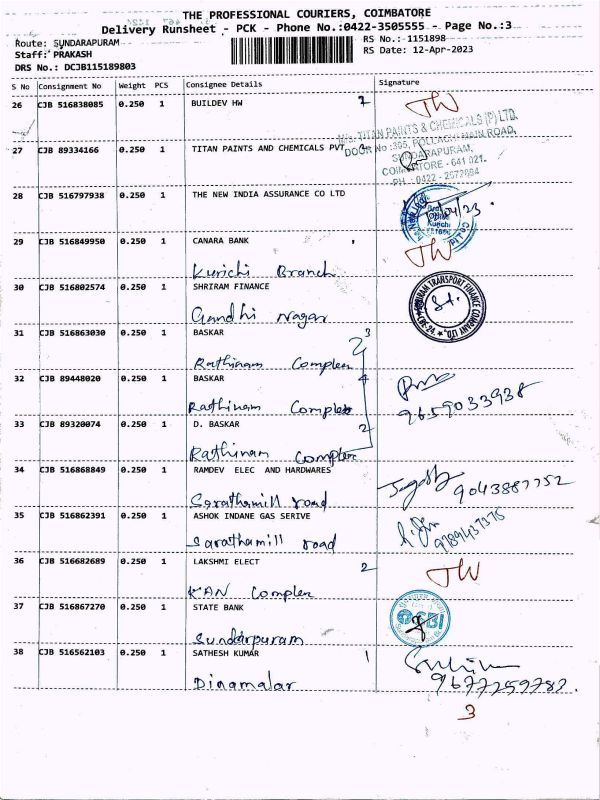 THE PROFESSIONAL COURIERS, COIMBATORE
Delivery Runsheet - PCK - Phone No.:0422-3505555 - Page No.:3
Route: SUNDARAPURAM
RS No.: 1151898
Staff: PRAKASH
RS Date: 12-Apr-2023
DRS No.: DCJB115189803
S No Consignment No Weight PCS Consignee Details Signature
26 CJB 516838085 0.250 1 BUILDEV HW 7 TW
M/s. TITAN PAINTS & CHEMICALS (P) LTD.
DOOR No :395, POLLACHI MAIN ROAD,
27 CJB 89334166 0.250 1 TITAN PAINTS AND CHEMICALS PVT
SUNDARAPURAM,
COIMBATORE - 641 021.
PH - 0422 - 2672894
28 CJB 516797938 0.250 1 THE NEW INDIA ASSURANCE CO LTD
29 CJB 516849950 0.250 1 CANARA BANK TW
Kurichi Branch
30 CJB 516802574 0.250 1 SHRIRAM FINANCE
Gandhi Nagar
31 CJB 516863030 0.250 1 BASKAR 3
Rathinam Complex
32 CJB 89448020 0.250 1 BASKAR 4
Rathinam Complex 9659033938
33 CJB 89320074 0.250 1 D. BASKAR 2
Rathinam Complex
34 CJB 516868849 0.250 1 RAMDEV ELEC AND HARDWARES
Sarathamill road 9043887752
35 CJB 516862391 0.250 1 ASHOK INDANE GAS SERIVE
Sarathamill road 9789437375
36 CJB 516682689 0.250 1 LAKSHMI ELECT 2 TW
KAN Complex
37 CJB 516867270 0.250 1 STATE BANK SBI
Sundarpuram
38 CJB 516562103 0.250 1 SATHESH KUMAR 1
Dinamalar 9677259782.
3